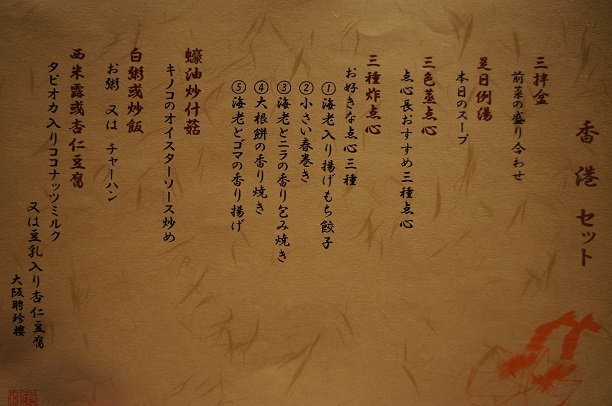 香港セット
三拌盆
前菜の盛り合わせ
是日例湯
本日のスープ
三色蒸点心
点心長おすすめ三種点心
三種炸点心
お好きな点心三種
①海老入り揚げもち餃子
②小さい春巻き
③海老とニラの香り包み焼き
④大根餅の香り焼き
⑤海老とゴマの香り揚げ
蠔油炒什菇
キノコのオイスターソース炒め
白粥或炒飯
お粥 又は チャーハン
西米露或杏仁豆腐
タピオカ入りココナッツミルク
又は豆乳入り杏仁豆腐
大阪聘珍樓